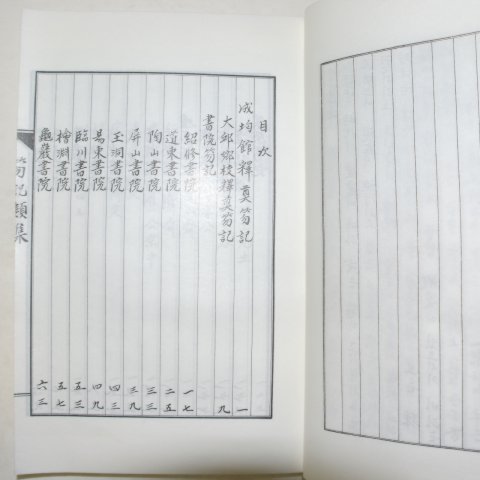 目次
成均館釋奠笏記 一
大邱鄕校釋奠笏記 九
書院笏記
紹修書院 一七
道東書院 二五
陶山書院 三三
屏山書院 三九
玉洞書院 四三
易東書院 四九
臨川書院 五三
檜淵書院 五七
龜巖書院 六三
笏記類集